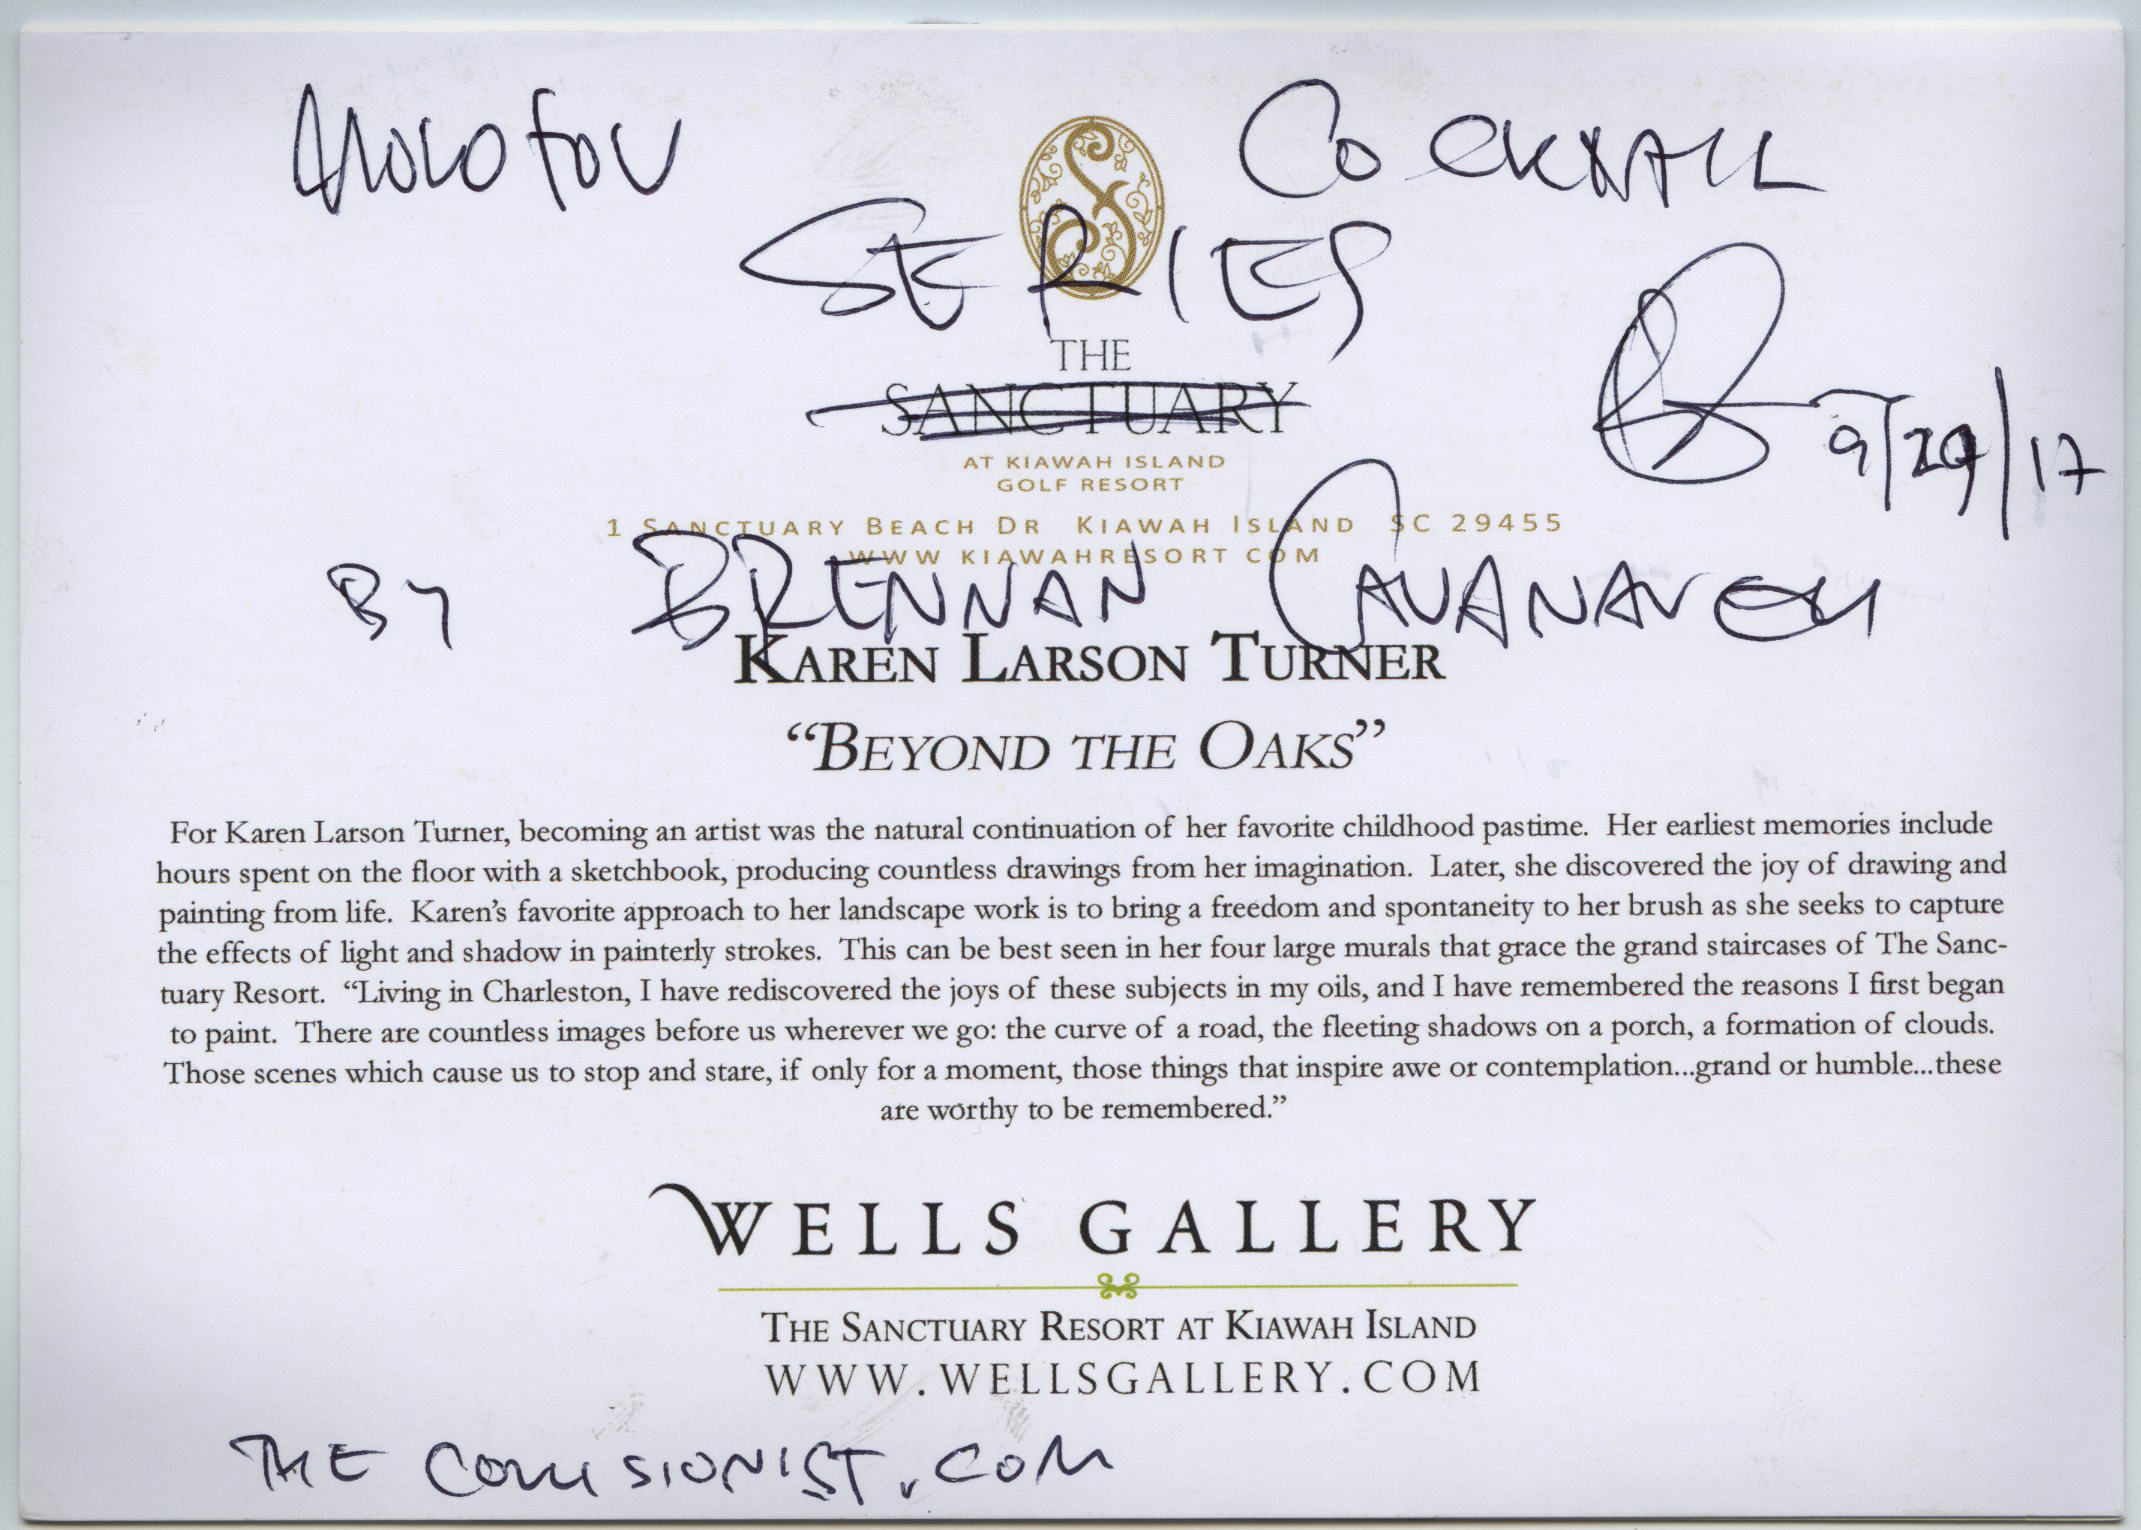 MOLOTOV COCKTAIL
SERIES
THE
SANCTUARY
AT KIAWAH ISLAND
GOLF RESORT
9/29/17
1 SANCTUARY BEACH DR KIAWAH ISLAND SC 29455
WWW KIAWAHRESORT COM
BY BRENNAN CAVANAUGH
KAREN LARSON TURNER
“BEYOND THE OAKS”
For Karen Larson Turner, becoming an artist was the natural continuation of her favorite childhood pastime. Her earliest memories include
hours spent on the floor with a sketchbook, producing countless drawings from her imagination. Later, she discovered the joy of drawing and
painting from life. Karen’s favorite approach to her landscape work is to bring a freedom and spontaneity to her brush as she seeks to capture
the effects of light and shadow in painterly strokes. This can be best seen in her four large murals that grace the grand staircases of The Sanc-
tuary Resort. “Living in Charleston, I have rediscovered the joys of these subjects in my oils, and I have remembered the reasons I first began
to paint. There are countless images before us wherever we go: the curve of a road, the fleeting shadows on a porch, a formation of clouds.
Those scenes which cause us to stop and stare, if only for a moment, those things that inspire awe or contemplation...grand or humble...these
are worthy to be remembered.”
WELLS GALLERY
THE SANCTUARY RESORT AT KIAWAH ISLAND
WWW.WELLSGALLERY.COM
THE COLLISIONIST.COM